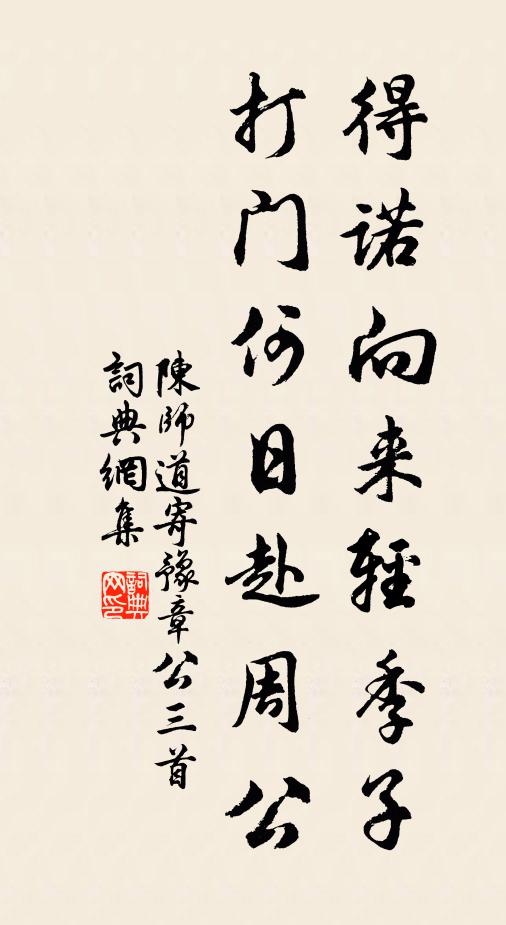 得诺向来輕季子
打门何日赴周公
陳師道寄豫章公三首
詞典網集
詞典
网印